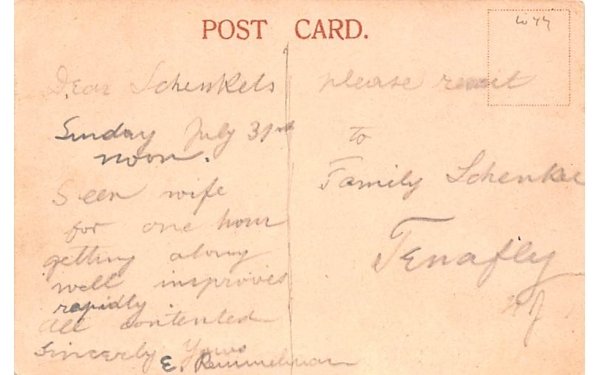 POST CARD.
Dear Schenkels
Sunday July 31st
noon.
Seen wife
for one hour
getting along
well improves
rapidly.
all contented
Sincerely Yours
E.
please remit
to
Family Schenkel
Tenafly
N J